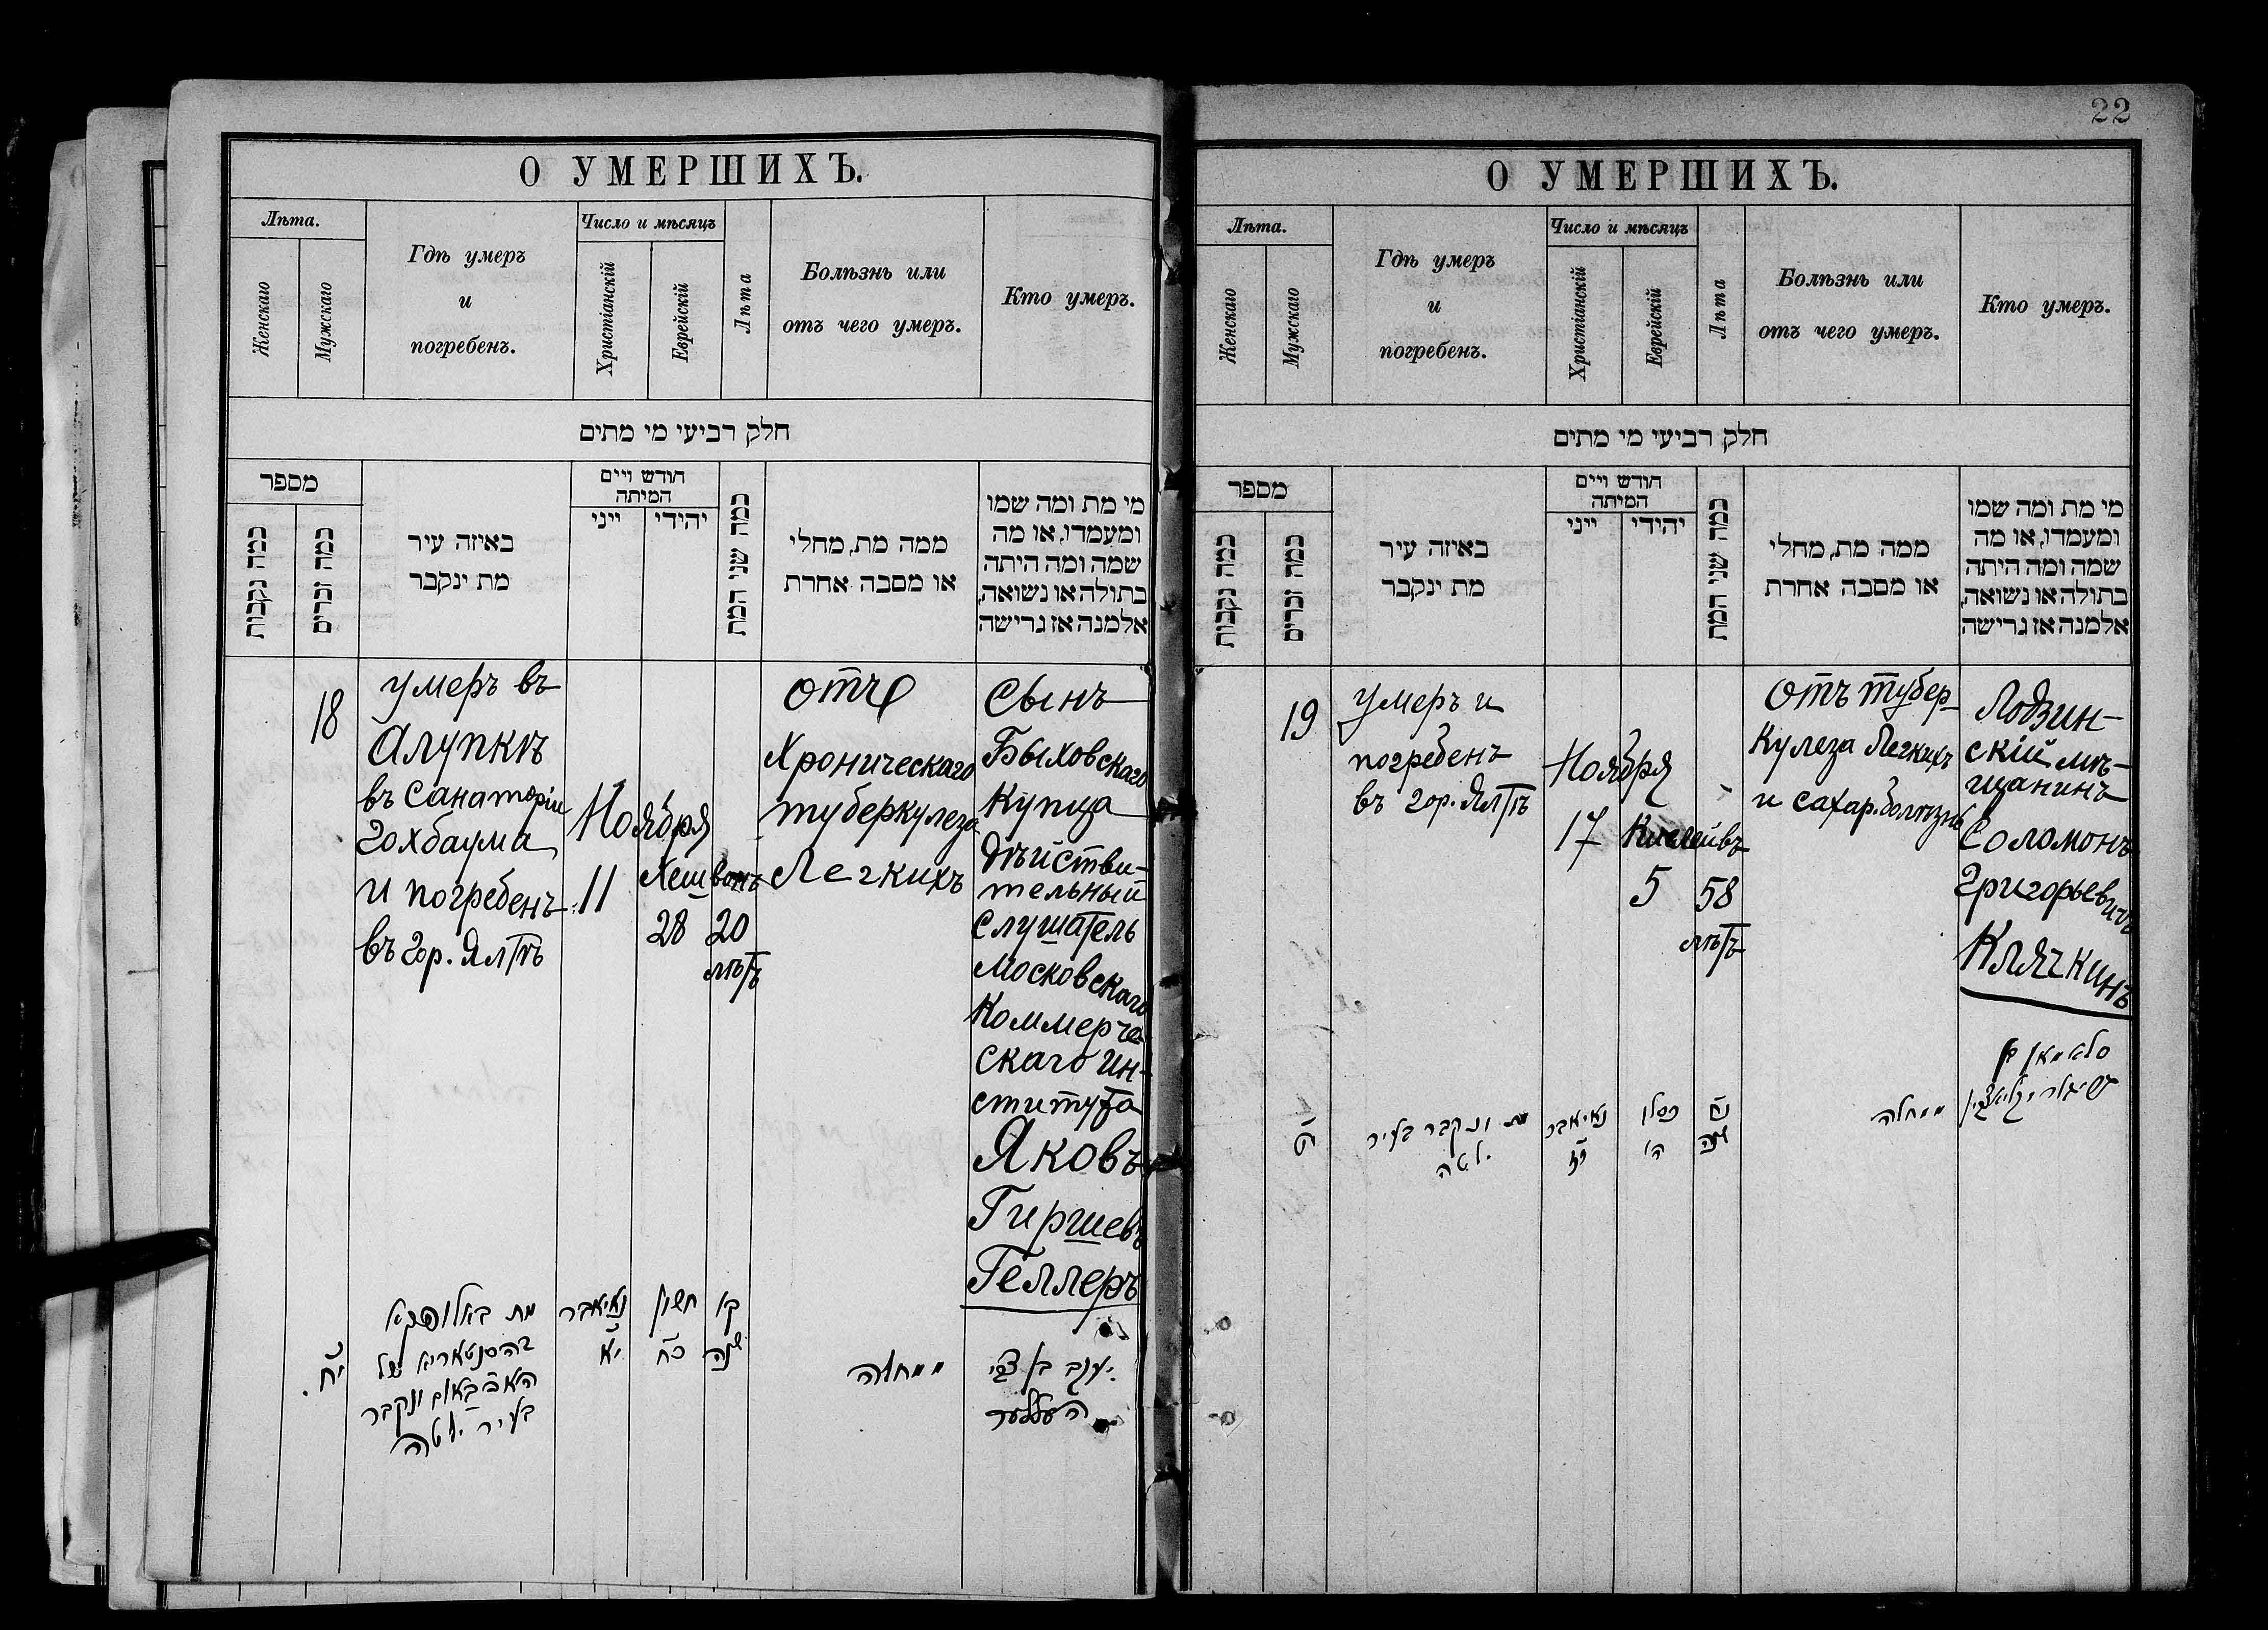 О УМЕРШИХЪ.
Лѣта.
Женскаго
Мужскаго
Гдѣ умеръ
и
погребенъ.
Число и мѣсяцъ
Христіанскій
Еврейскій
Лѣта
Болѣзнь или
отъ чего умеръ.
Кто умеръ.
חלק רביעי מי מתים
מספר
כמה נקבות
כמה זכרים
באיזה עיר
מת ינקבר
חודש ויים
המיתה
ייני
יהודי
כמה שני המת
ממה מת, מחלי
או מסבה אחרת
מי מת ומה שמו
ומעמדו, או מה
שמה ומה היתה
בתולה או נשואה,
אלמנה אז גרישה
18
умеръ въ
Алупкѣ
въ Санаторіи
Гохбаума
и погребенъ
въ гор. Ялтѣ
Ноября
11
Хешвонъ
28
20
лѣтъ
отъ
Хроническаго
туберкулеза
Легкихъ
Сынъ
Быховскаго
Купца
дѣйстви-
тельный
слушатель
Московскаго
Коммерче-
скаго Ин-
ститута
Яковъ
Гиршевъ
Геллеръ
י״ח.
מת באלופקא
בהסנטאריא של
האכבאום ונקבר
בעיר ילטה
נאיאבר
י״א
חשון
כ״ח
שנה
ממחלה
יעקב בן צבי
העללער
22
О УМЕРШИХЪ.
Лѣта.
Женскаго
Мужскаго
Гдѣ умеръ
и
погребенъ.
Число и мѣсяцъ
Христіанскій
Еврейскій
Лѣта
Болѣзнь или
отъ чего умеръ.
Кто умеръ.
חלק רביעי מי מתים
מספר
כמה נקבות
כמה זכרים
באיזה עיר
מת ינקבר
חודש ויים
המיתה
ייני
יהודי
כמה שני המת
ממה מת, מחלי
או מסבה אחרת
מי מת ומה שמו
ומעמדו, או מה
שמה ומה היתה
בתולה או נשואה,
אלמנה אז גרישה
19
умеръ и
погребенъ
въ гор. Ялтѣ
Ноября
17
Кислейвъ
5
58
лѣтъ
отъ тубер-
кулеза Легкихъ
и сахар. болѣзнь
Лодзин-
скій мѣ-
щанинъ
Соломонъ
Григорьевичъ
Клячкинъ
י״ט
מת ונקבר בעיר
ילטה
נאיאבר
י״ז
כסלו
ה׳
נ״ח
שנה
ממחלה
סלאמאן בן
קליאצקין